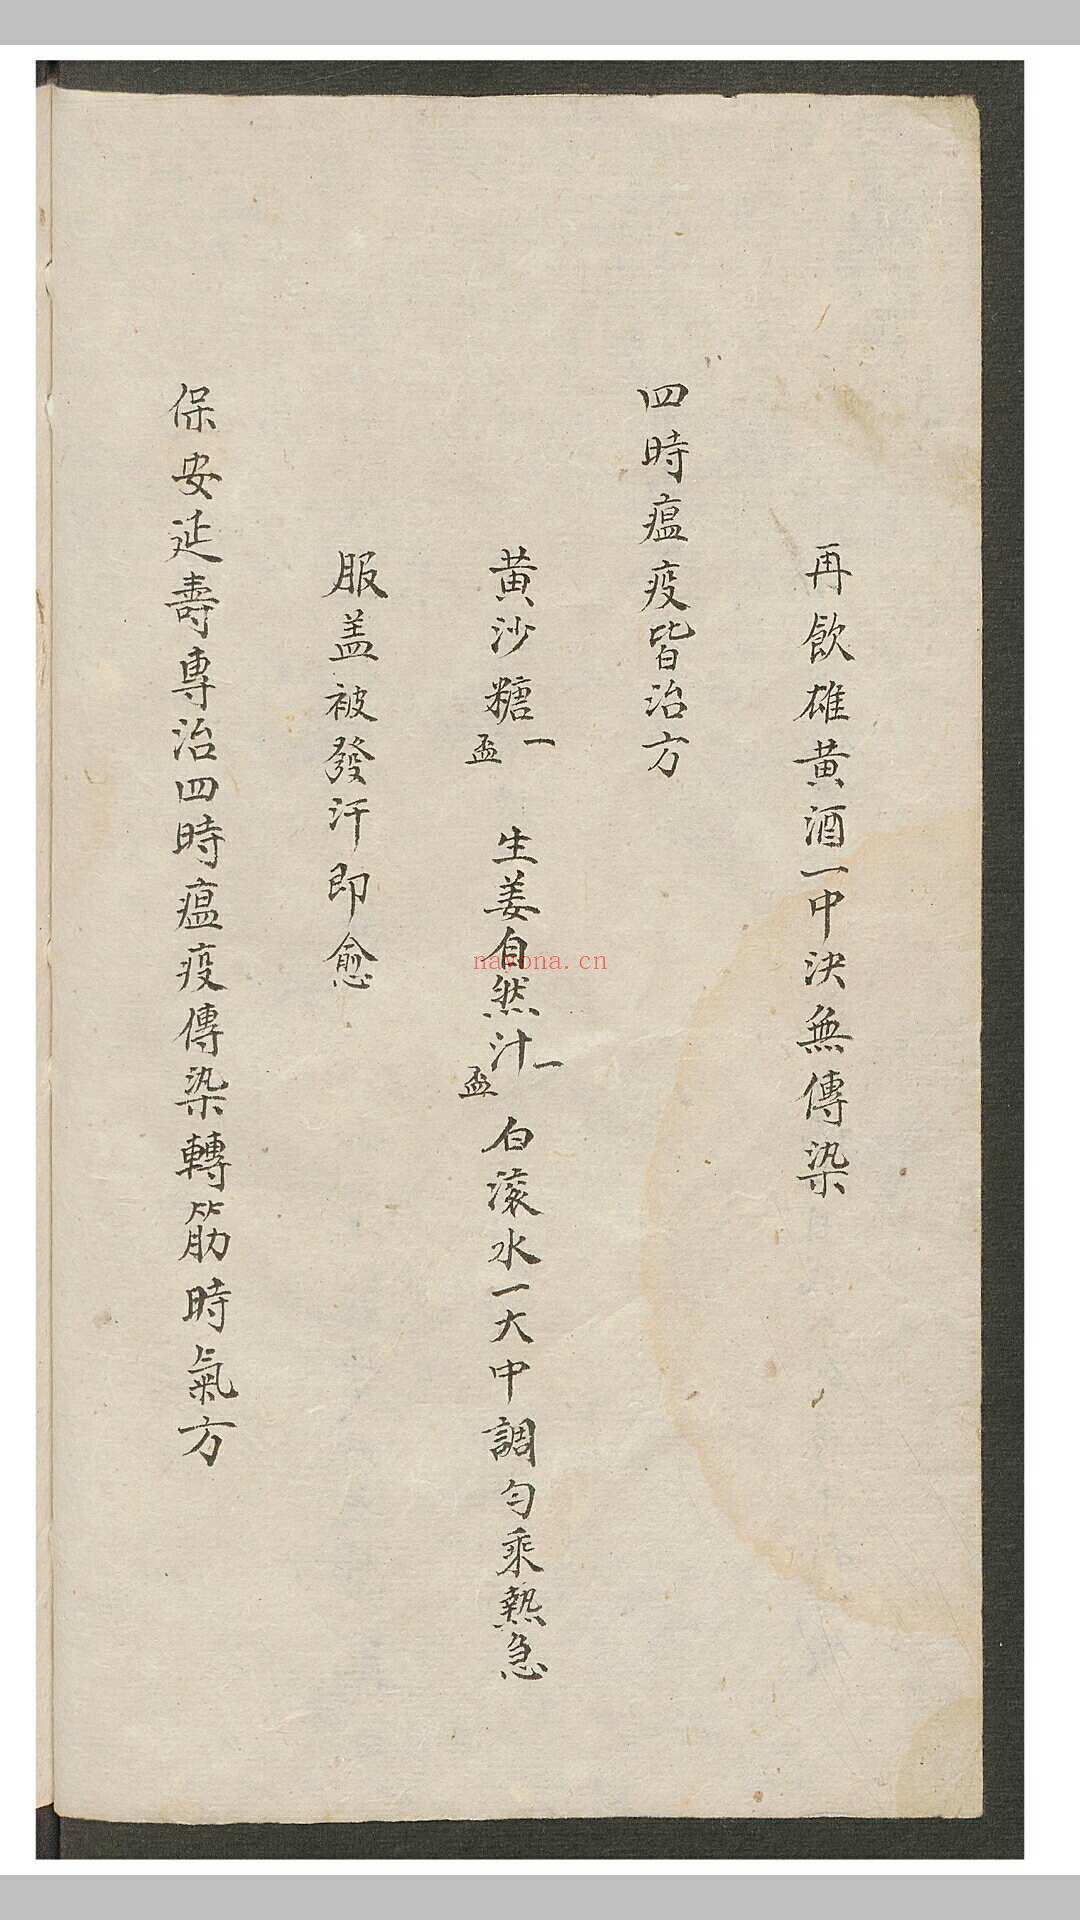 再飲雄黄酒一中決無傳染
四時瘟疫皆治方
黄沙糖一盃 生姜自然汁一盃 白滚水一大中調匀乘熱急
服盖被發汗即愈
保安延壽專治四時瘟疫傳染轉筋時氣方
nayona.cn